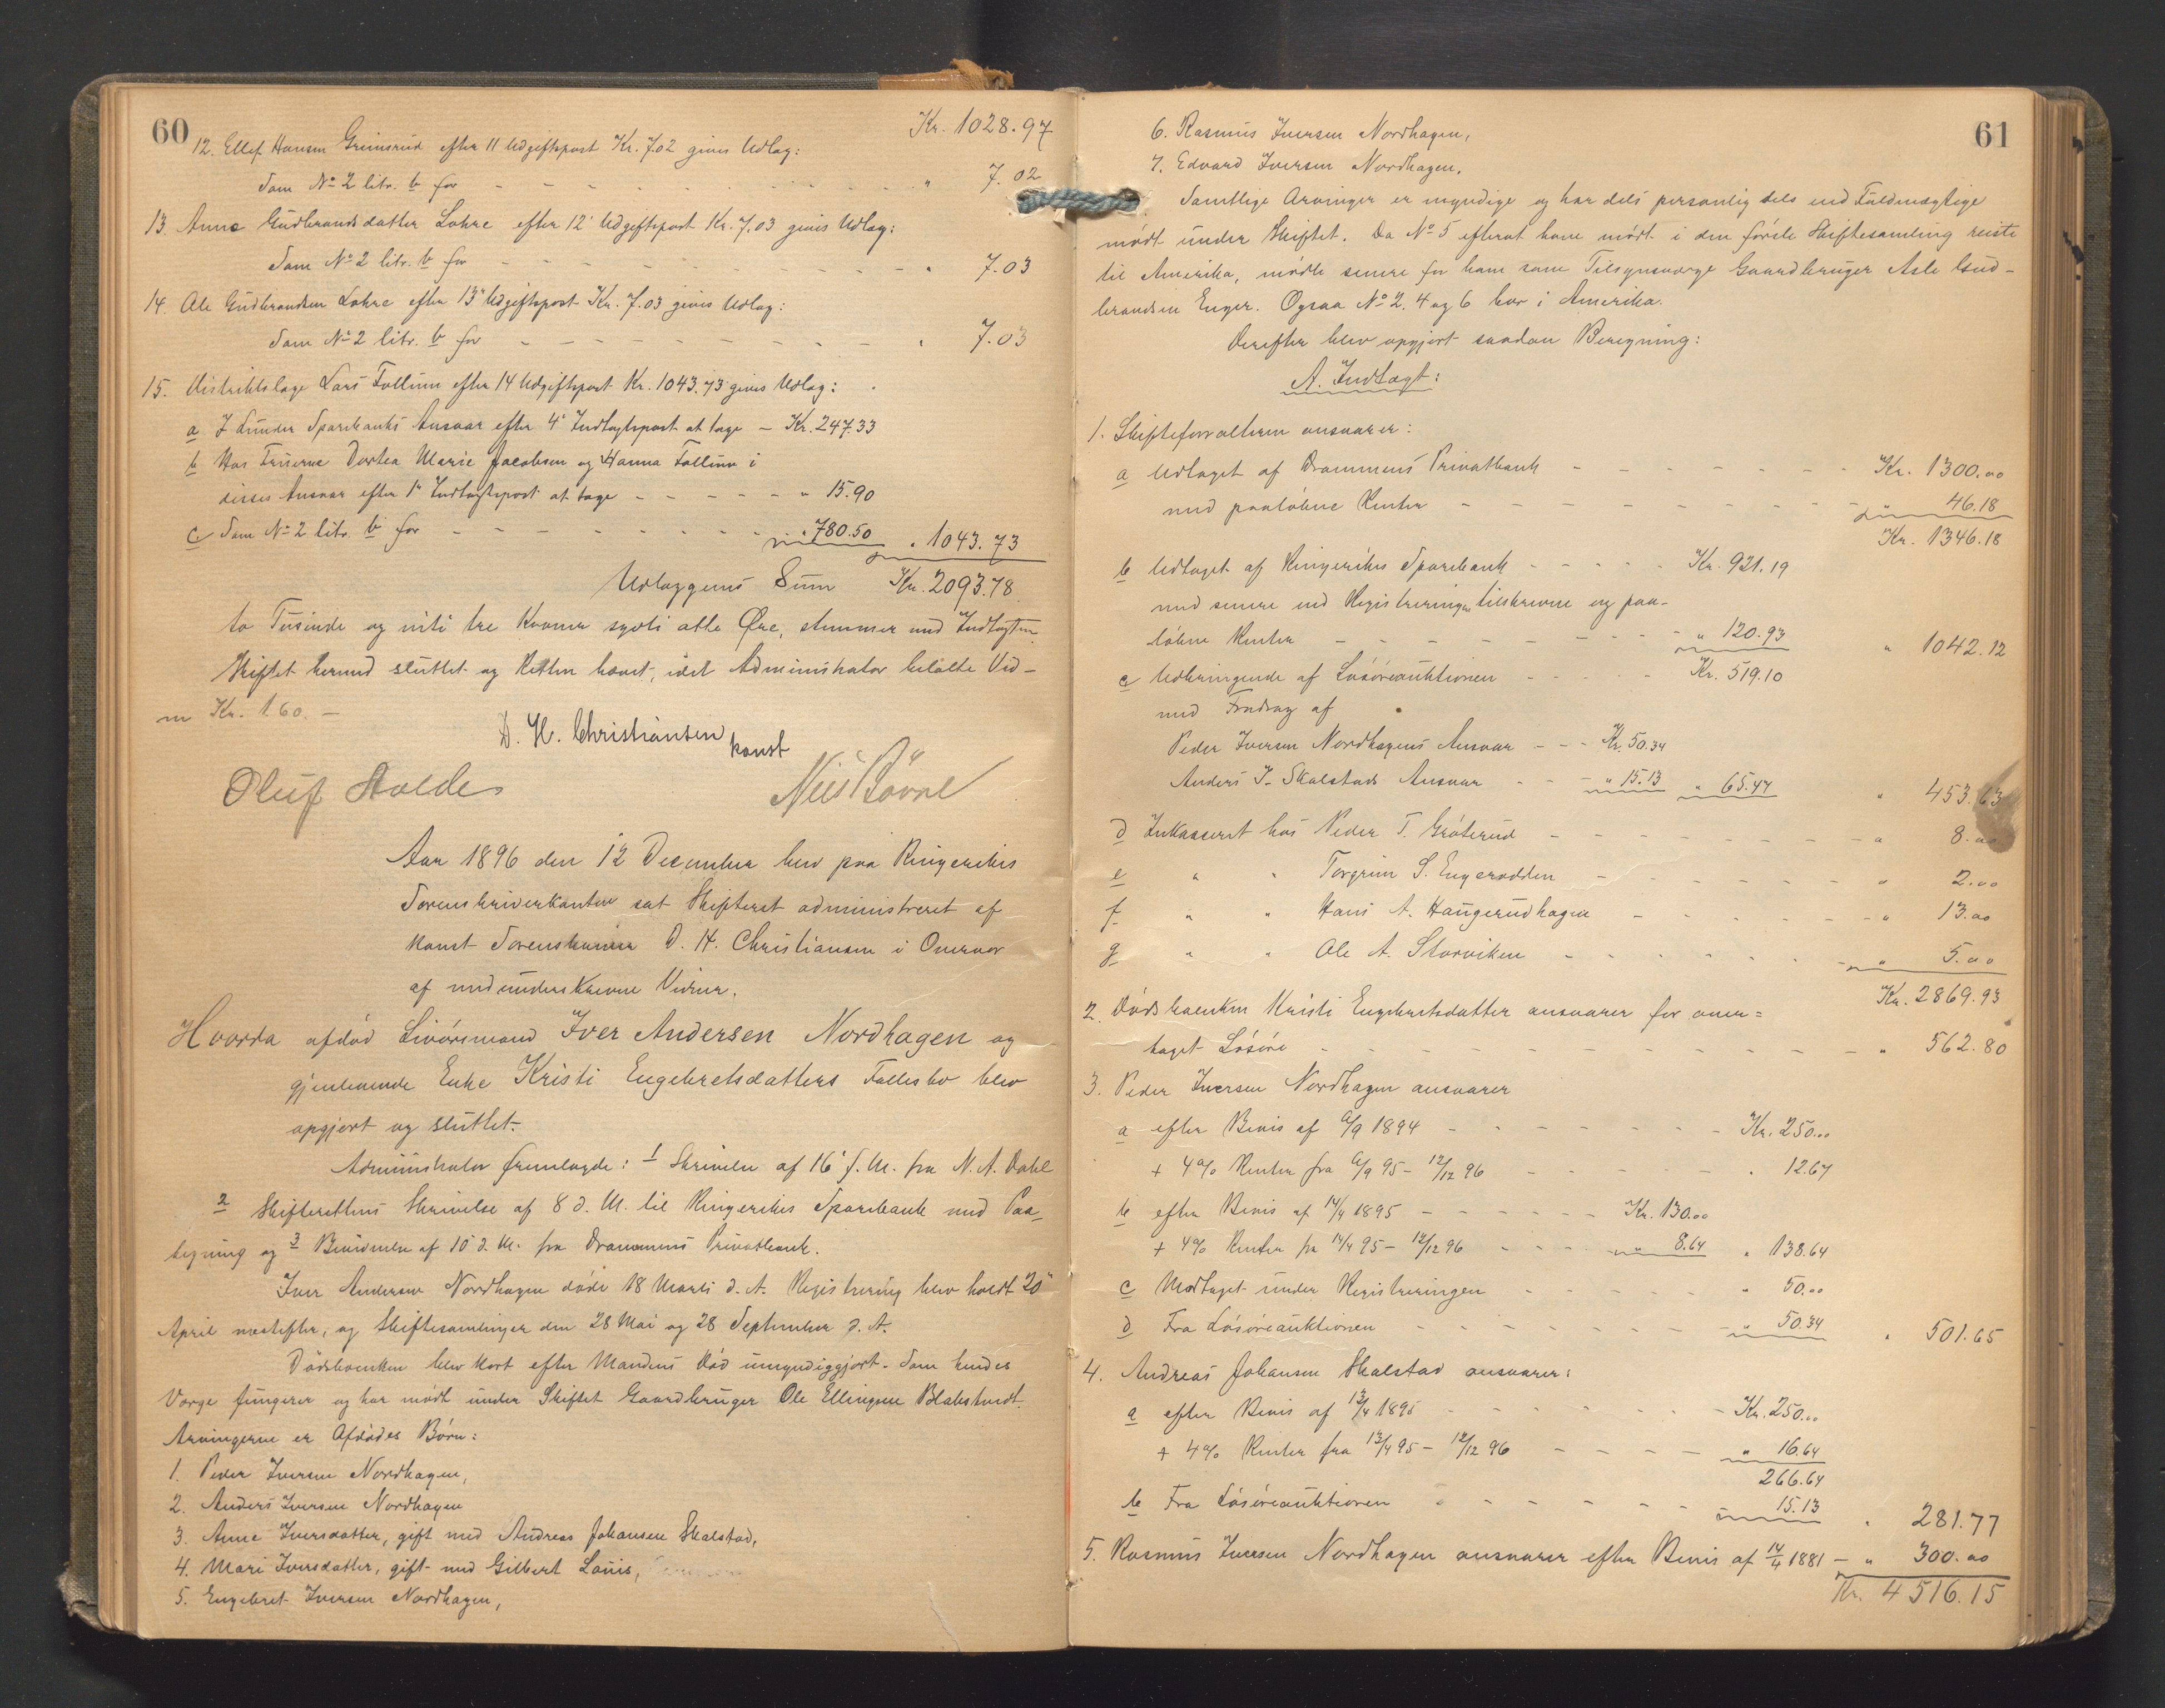 60
Kr. 1028.97
12. Ellef Hansen Grimsrud efter 11 Udgiftspost Kr. 7.02 gives Udlæg:
Som No 2 litr. b for - - - - " 7.02
13. Anne Gudbrandsdatter Lohre efter 12' Udgiftspost Kr. 7.03 gives Udlæg:
Som No 2 litr. b for - - - - " 7.03
14. Ole Gudbrandsen Lohre efter 13' Udgiftspost Kr. 7.03 gives Udlæg:
Som No 2 litr. b for - - - - " 7.03
15. Distriktslæge Lars Follum efter 14 Udgiftspost Kr. 1043.73 gives Udlæg:
a I Lunder Sparebanks Ansvar efter 4' Indtægtspost at tage - Kr. 247.33
b Hos Fruerne Dortea Marie Jacobsen og Hanna Follum i
disses Ansvar efter 1' Indtægtspost at tage - - - - " 15.90
c Som No 2 litr. b for - - - - " 780.50 " 1043.73
Udlæggenes Sum Kr. 2093.78
to Tusinde og niti tre Kroner sytti otte Øre, stemmer med Indtægten.
Skiftet hermed sluttet og Retten hævet, idet Administrator betalte Vid-
ne Kr. 1.60. -
D. H. Christiansen
konst
Oluf Holde
Aar 1896 den 12 December blev paa Ringerikes
Sorenskriverkontor sat Skifteret administreret af
konst Sorenskriver D. H. Christiansen i Overvær
af medunderskrevne Vidner.
Hvorda afdød Livørsmand Iver Andersen Nordhagen og
gjenlevende Enke Kristi Engebretsdatters Fællesbo blev
opgjort og sluttet.
Administrator fremlagde: 1 Skrivelse af 16' f. M. fra N. A. Dahl
2 Skifterettens Skrivelse af 8 d. M. til Ringerikes Sparebank med Paa-
tegning og 3 Bevidnelse af 10' d. M. fra Drammens Privatbank.
Iver Andersen Nordhagen døde 18 Marts d. A. Registrering blev holdt 20'
April næstefter, og Skiftesamlinger den 28 Mai og 28 September d. A.
Dødsboenken blev kort efter Mandens Død umyndiggjort. Som hendes
Værge fungerer og har mødt under Skiftet Gaardbruger Ole Ellingsen Blakstvedt.
Arvingerne er Afdødes Børn:
1. Peder Iversen Nordhagen,
2. Anders Iversen Nordhagen
3. Anne Iversdatter, gift med Andreas Johansen Skalstad,
4. Mari Iversdatter, gift med Gilbert Louis,
5. Engebret Iversen Nordhagen,
61
6. Rasmus Iversen Nordhagen,
7. Edvard Iversen Nordhagen.
Samtlige Arvinger er myndige og har dels personlig dels ved Fuldmægtige
mødt under Skiftet. Da No 5 efterat have mødt i den første Skiftesamling reiste
til Amerika, mødte senere for ham som Tilsynsværge Gaardbruger Asle Gud-
brandsen Enger. Ogsaa No 2. 4 og 6 bor i Amerika.
Derefter blev opgjort saadan Beregning:
A. Indtægt:
1. Skifteforvalteren ansvarer:
a Udtaget af Drammens Privatbank - - - - Kr. 1300.00
med paaløbne Renter - - - - " 46.18
Kr. 1346.18
b Udtaget af Ringerikes Sparebank - - - - Kr. 921.19
med senere end Registreringen tilskrevne og paa-
løbne Renter - - - - " 120.93 " 1042.12
c Udbringende af Løsøreauktionen - - - - Kr. 519.10
med Fradrag af
Peder Iversen Nordhagens Ansvar - - - Kr. 50.34
Anders J. Skalstads Ansvar - - - " 15.13 " 65.47 " 453.63
d Inkasseret hos Peder T. Grøterud - - - - " 8.00
e " " Torgrim S. Engerodden - - - - " 2.00
f " " Hans A. Haugerudhagen - - - - " 13.00
g " " Ole A. Storviken - - - - " 5.00
Kr. 2869.93
2. Dødsboenken Kristi Engebretsdatter ansvarer for over=
taget Løsøre - - - - " 562.80
3. Peder Iversen Nordhagen ansvarer
a efter Bevis af 6/9 1894 - - - - Kr. 250.00
+ 4% Renter fra 6/9 95 - 12/12 96 - - - - " 12.67
b efter Bevis af 14/4 1895 - - - - Kr. 130.00
+ 4% Renter fra 14/4 95 - 12/12 96 - - - " 8.64 " 138.64
c Modtaget under Registreringen - - - - " 50.00
d Fra Løsøreauktionen - - - - " 50.34 " 501.65
4. Andreas Johansen Skalstad ansvarer:
a efter Bevis af 13/4 1895 - - - - Kr. 250.00
+ 4% Renter fra 13/4 95 - 12/12 96 - - - - " 16.64
266.64
b Fra Løsøreauktionen - - - - 15.13 " 281.77
5. Rasmus Iversen Nordhagen ansvarer efter Bevis af 14/4 1881 - " 300.00
Kr. 4516.15